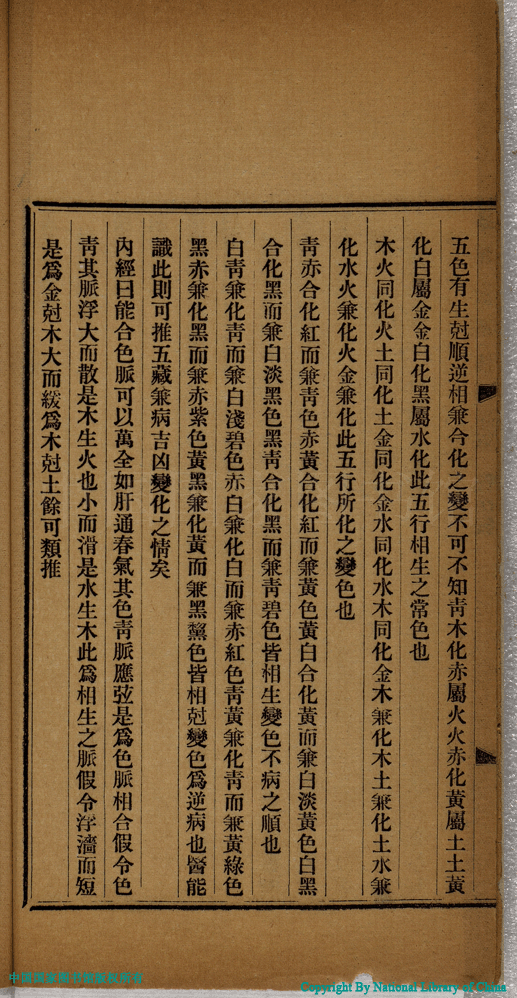 五色有生尅順逆相兼合化之變不可不知靑木化赤屬火火赤化黃屬土土黃
化白屬金金白化黑屬水化此五行相生之常色也
木火同化火土同化土金同化金水同化水木同化金木兼化木土兼化土水兼
化水火兼化火金兼化此五行所化之變色也
靑赤合化紅而兼靑色赤黃合化紅而兼黃色黃白合化黃而兼白淡黃色白黑
合化黑而兼白淡黑色黑靑合化黑而兼靑碧色皆相生變色不病之順也
白靑兼化靑而兼白淺碧色赤白兼化白而兼赤紅色靑黃兼化靑而兼黃綠色
黑赤兼化黑而兼赤紫色黃黑兼化黃而兼黑黧色皆相尅變色爲逆病也醫能
識此則可推五藏兼病吉凶變化之情矣
內經曰能合色脈可以萬全如肝通春氣其色靑脈應弦是爲色脈相合假令色
靑其脈浮大而散是木生火也小而滑是水生木此爲相生之脈假令浮濇而短
是爲金尅木大而緩爲木尅土餘可類推
中国国家图书馆版权所有
Copyright By National Library of China